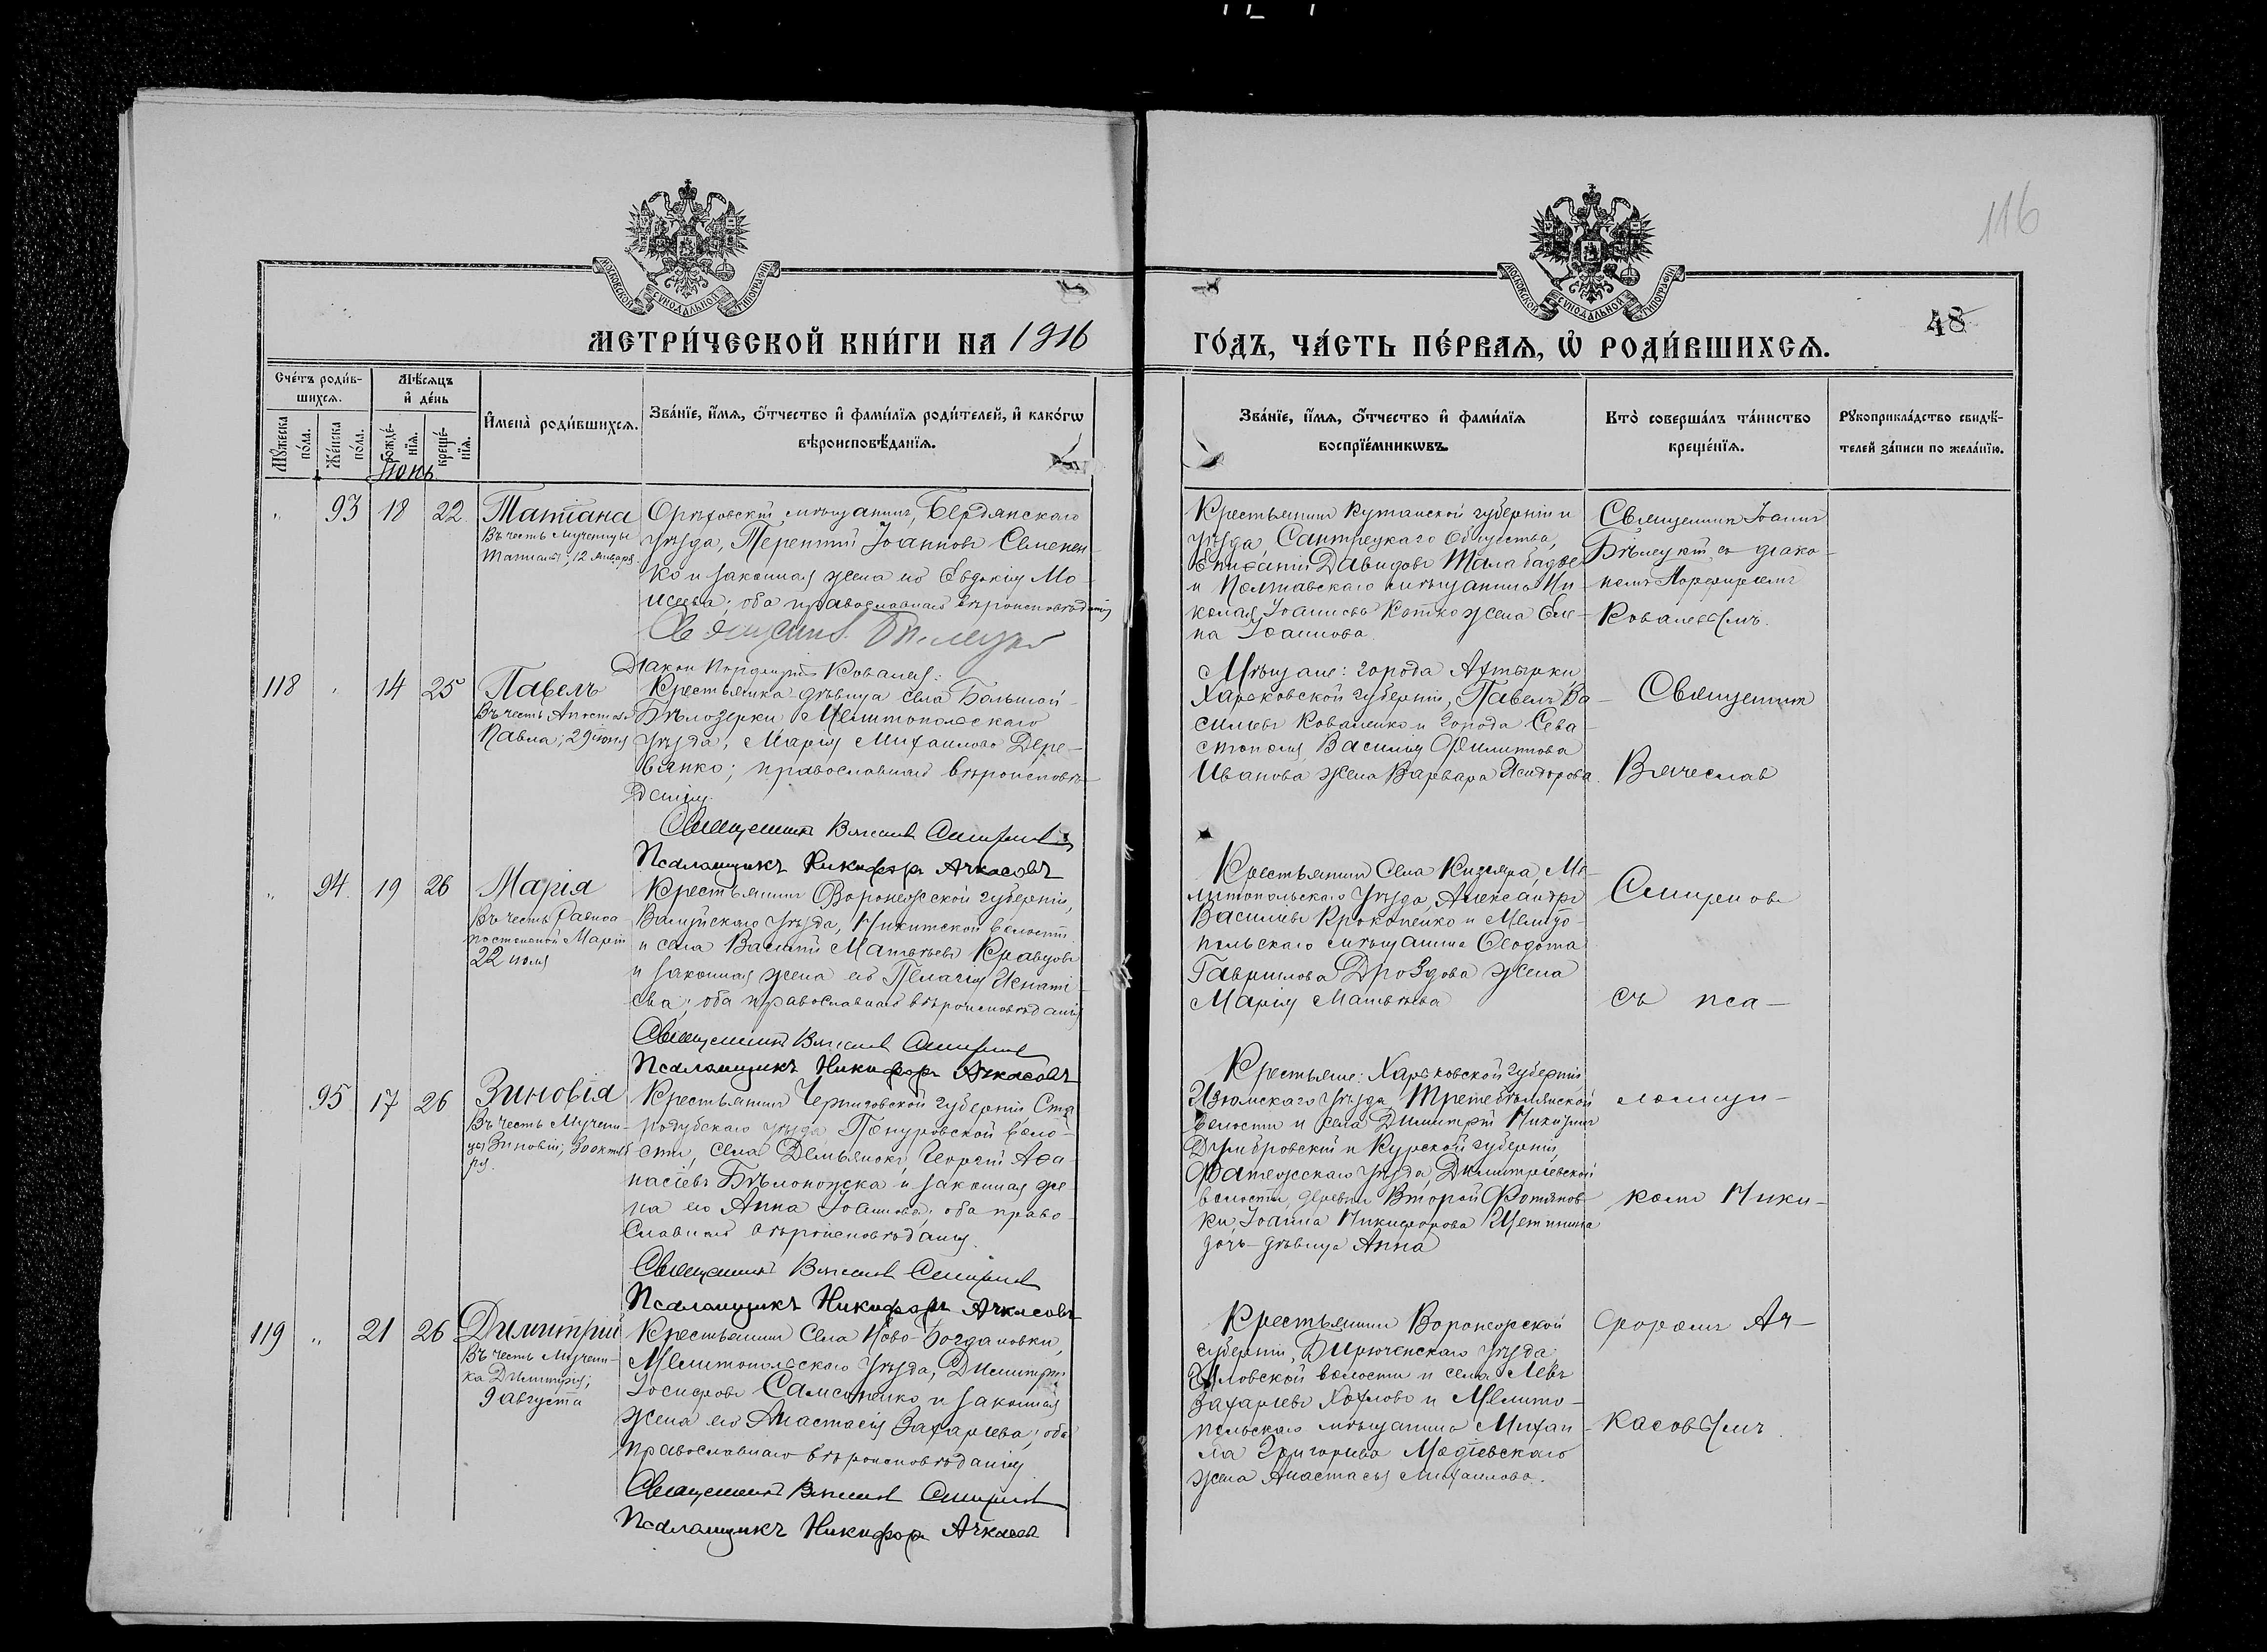 116
МОСКОВСКОЙ СѴНОДАЛЬНОЙ ТИПОГРАФІИ
МОСКОВСКОЙ СѴНОДАЛЬНОЙ ТИПОГРАФІИ
48
МЕТРИ́ЧЕСКОЙ КНИ́ГИ НА 1916
ГО́ДЪ, ЧА́СТЬ ПЕ́РВАѦ, Ѡ҆ РОДИ́ВШИХСѦ.
Сче́тъ роди́в-
шихсѧ.
Мѣ́сѧцъ
и҆ де́нь
Мꙋ́жеска
по́ла.
Же́нска
по́ла.
рожде́-
нїѧ.
креще́-
нїѧ.
И҆мена̀ роди́вшихсѧ.
Зва́нїе, и҆́мѧ, ѻ҆́тчество и҆ фами́лїѧ роди́телей, и҆ како́гѡ
вѣроисповѣ́данїѧ.
Зва́нїе, и҆́мѧ, ѻ҆́тчество и҆ фами́лїѧ
воспрїе́мникѡвъ.
Кто̀ соверша́лъ та́инство
креще́нїѧ.
Рꙋкоприкла́дство свидѣ́-
телей за́писи по жела́нїю.
Іюнь
" 93 18 22
Татіана
Въ честь мученицы
Татіаны; 12 января
Орѣховскій мѣщанинъ, Бердянскаго
уѣзда, Терентій Іоанновъ Семенен-
ко и законная жена его Евдокія Мо-
исеева; оба православнаго вѣроисповѣданія
Священникъ Бѣлецкій
Діаконъ Порфирій Ковалевъ
Крестьянинъ Кутаиской губерніи и
уѣзда, Сантрецкаго общества,
Давидовъ
и Полтавскаго мѣщанина Ни-
колая Іоаннова Котко жена Еле-
на Іоаннова.
Священникъ Іоаннъ
Бѣлецкій съ діако-
номъ Порфиріемъ
Ковалевымъ.
118 " 14 25
Павелъ
Въ честь Апостола
Павла; 29 іюня
Крестьянка дѣвица села Большой-
Бѣлозерки Мелитопольскаго
уѣзда, Марія Михаилова Дере-
вянко; православнаго вѣроисповѣ-
данія.
Священникъ Вячеславъ Смирновъ
Псаломщикъ Никифоръ Ачкасовъ
Мѣщане: города Ахтырки
Харьковской губерніи, Павелъ Ва-
сильевъ Коваленко и города Сева-
стополя, Василія Филиппова
Иванова жена Варвара Исидорова.
Священникъ
Вячеславъ
" 94 19 26
Марія
Въ честь Равноа-
постольной Маріи
22 іюля
Крестьянинъ Воронежской губерніи,
Валуйскаго уѣзда, Никитской волости
и села Василій Матвѣевъ Кравцовъ
и законная жена его Пелагія Игнати-
ева; оба православнаго вѣроисповѣданія
Священникъ Вячеславъ Смирновъ
Псаломщикъ Никифоръ Ачкасовъ
Крестьянинъ села Кизияра, Ме-
литопольскаго уѣзда, Александръ
Василіевъ Прокопенко и Мелито-
польскаго мѣщанина Ѳеодота
Гаврилова Дроздова жена
Марія Матвѣева
Смирновъ
съ пса-
95 17 26
Зиновія
Въ честь Мучени-
цы Зиновіи; 30 октяб-
ря.
Крестьянинъ Черниговской губерніи Ста-
родубскаго уѣзда, Понуровской воло-
сти, села Демьянокъ, Георгій Аѳа-
насіевъ Бѣлоножка и законная же-
на его Анна Іоаннова; оба право-
славнаго вѣроисповѣданія.
Священникъ Вячеславъ Смирновъ
Псаломщикъ Никифоръ Ачкасовъ
Крестьяне: Харьковской губерніи
Изюмскаго уѣзда
волости и села Димитрій Никитинъ
Думбровскій и Курской губерніи,
Фатежскаго уѣзда, Димитріевской
волости, деревни Второй
ки, Іоанна Никифорова Щетинина
дочь-дѣвица Анна
ломщи-
комъ Ники-
119 " 21 26
Димитрій
Въ честь Мучени-
ка Димитрія;
9 августа
Крестьянинъ села Ново-Богдановки,
Мелитопольскаго уѣзда, Димитрій
Іосифовъ Самсоненко и законная
жена его Анастасія Захаріева; оба
православнаго вѣроисповѣданія
Священникъ Вячеславъ Смирновъ
Псаломщикъ Никифоръ Ачкасовъ
Крестьянинъ Воронежской
губерніи, Бирюченскаго уѣзда
волости и села Левъ
Захаріевъ Хохловъ и Мелито-
польскаго мѣщанина Михаи-
ла Григорьева
жена Анастасія Михаилова.
форомъ Ач-
касовымъ